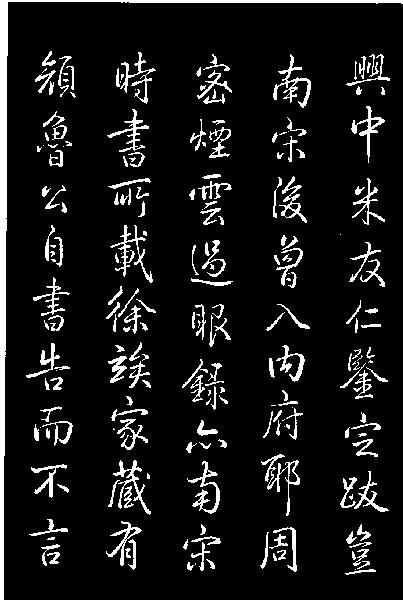 興中米友仁鑒定跋豈
南宋後曾入内府耶周
密煙雲過眼録亦南宋
時書所載徐竢家藏有
顔魯公自書告而不言